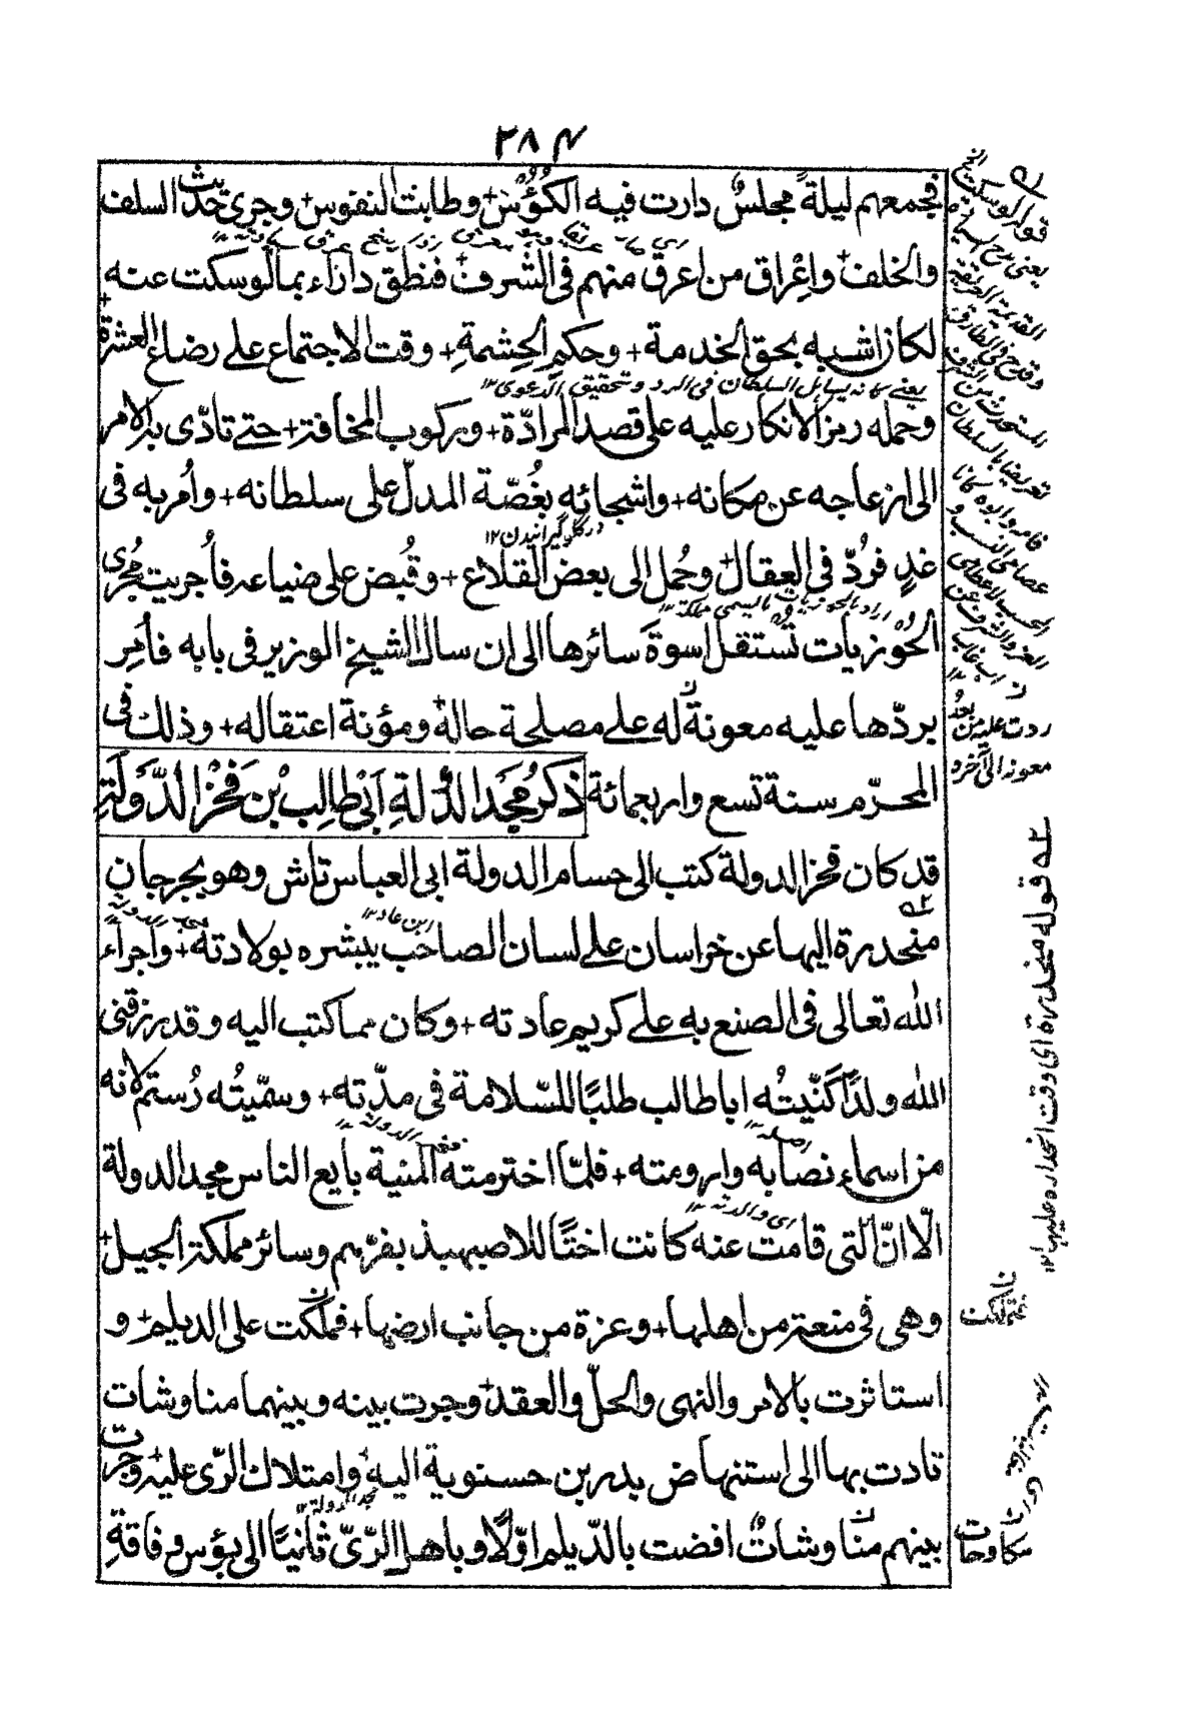 ٣٨٤
فجمعهم ليلةً مجلسٌ دارت فيه الكؤس + وطابت النفوس + وجرى حديث السلف
والخلف + واِعْراق من اعرق منهم فى الشرف + فنطق داراء بمالوسكت عنه +
لكان اشبه بحق الخدمة + وحكم الحِشمةِ + وقت الاجتماع على رضاع العشرة
وحمله ريز الانكار عليه على قصد المرادّة + وركوب المخافة + حتے تادّى به الامر
الى ازعاجه عن مكانه + واشجائه بغُصّة المدلّ على سلطانه + واُمر به فى
غدٍ فرُدّ فى العقال + وحُمل الى بعض القلاع + وقُبض على ضياعه فاُجريت مُجرى
الحُوزيات تُستقل اسوةَ سائرها الى ان سال الشيخ الوزير فى بابه فاُمر
بردّها عليه معونةً له علے مصلحة حاله + ومؤنة اعتقاله + وذلك فى
المحرّم سنة تسع واربعمائة ذكرُ مجد الدَّولةِ اَبِى طالب بْن فَخْر الدَّوْلَةِ
قد كان فخر الدولة كتب الى حسام الدولة ابى العباس تاش وهو بجرجان
منحدره اليها عن خراسان علے لسان الصاحب يبشره بولادته + واجراء
الله تعالى فى الصنع به علے كريم عادته + وكان مما كتب اليه وقد رزقنى
الله ولدًا كَنّيتُه اباطالب طلبًا للسّلامة فى مدّته + وسمّيتُه رُستم لانه
من اسماء نصابه وارومته + فلمّا اخترمته المنية بايع الناس مجد الدولة
الّا انّ التى قامت عنه كانت اختًا للاصبهبذ بفرّيم وسائر مملكة الجيل +
وهى فى منعة من اهلها + وعزة من جانب ارضها + فملكت على الديلم + و
استاثرت بالامر والنهى والحلّ والعقد + وجرت بينه وبينهما مناوشات
تادت بها الى استنهاض بدر بن حسنوية اليه + وامتلاك الرّى عليه + وجرت
بينهم مناوشاتٌ افضت بالدّيلم اوّلًا وباهل الرّىّ ثانيًا الى بؤس وفاقةٍ
يعنے كانه يسابل السلطان فى الرد وتحقيق الدعوى ١٢
در گلو گيرانيدن ١٢
ابن عباد ١٢
اى والدته ١٢
مجد الدولة ١٢
ردت عليه من بعدُ
معونة الى آخره
٥٢ قوله منحدره اى وقت انحداره عليها ١٢
فتملكت
مكاوحات